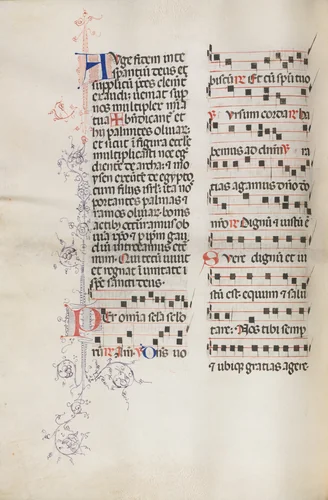 Auge fidem in te
sperantium deus et
supplicum preces clemen
ter exaudi: ueniat sup
nos multiplex mia
tua ✠ bndicane et
hii palmites oliuar
et sicut in figura eccle
multiplicasti noe egr
dientē de archa: et mo
ysen exeuntē de egypto
cum filiis isrl: ita nos
portantes palmas et
ramos oliuar bonis
actib occuramus ob
uia xpo et p ipm gau
dium introeamus eter
num. Qui tecū uiuit
et regnat in unitate
spe sancti deus.
Per omia scla sclo
rū R Am V Dns uo
biscū R Et cū spū tuo
V Sursum corda R ha
bemus ad dnm V
gratias agamus dno do
nro R Dignū et iustū ē
Vere dignū et iu
stū est: equum et salu
tare: Nos tibi semp
et ubique gratias agere